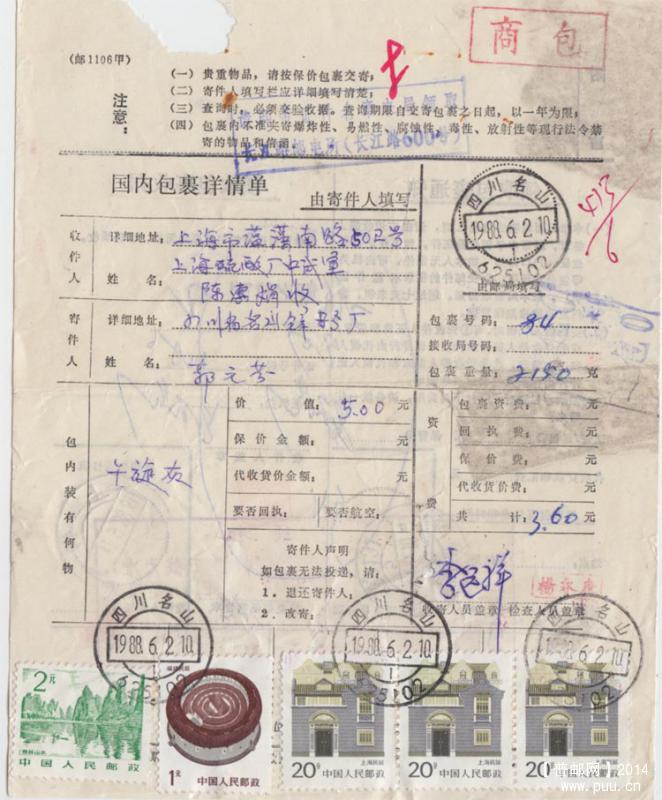 商包
(邮1106甲)
注意:
(一) 贵重物品,请按保价包裹交寄;
(二) 寄件人填写栏应详细填写清楚;
(三) 查询时,必须交验收据。查询期限自交寄包裹之日起,以一年为限;
(四) 包裹内不准夹寄爆炸性、易燃性、腐蚀性、毒性、放射性等现行法令禁
寄的物品和信函。
(长江路600号)
国内包裹详情单
由寄件人填写
四川名山
1988.6.2.10
1
625102
由邮局填写
收件人
详细地址:上海市 南路502号
上海硫酸厂
姓名:陈 收
寄件人
详细地址:四川省名山 厂
姓名:郭元芬
包裹号码:84
接收局号码:
包裹重量:2150 克
包内装有何物
价值:5.00 元
保价金额: 元
代收货价金额: 元
要否回执: 要否航空:
寄件人声明
如包裹无法投递,请:
1.退还寄件人;
2.改寄:
资费
包裹资费: 元
回执费: 元
保价费: 元
代收货价费: 元
共计:3.60 元
收寄人员盖章 检查人员盖章
四川名山
1988.6.2.10
625102
四川名山
1988.6.2.10
1
625102
四川名山
1988.6.2.10
2元
中国人民邮政
福建民居
1元
中国人民邮政
上海民居
20分
中国人民邮政
上海民居
20分
中国人民邮政
上海民居
20分
中国人民邮政
【普邮网】2014
www.puu.cn